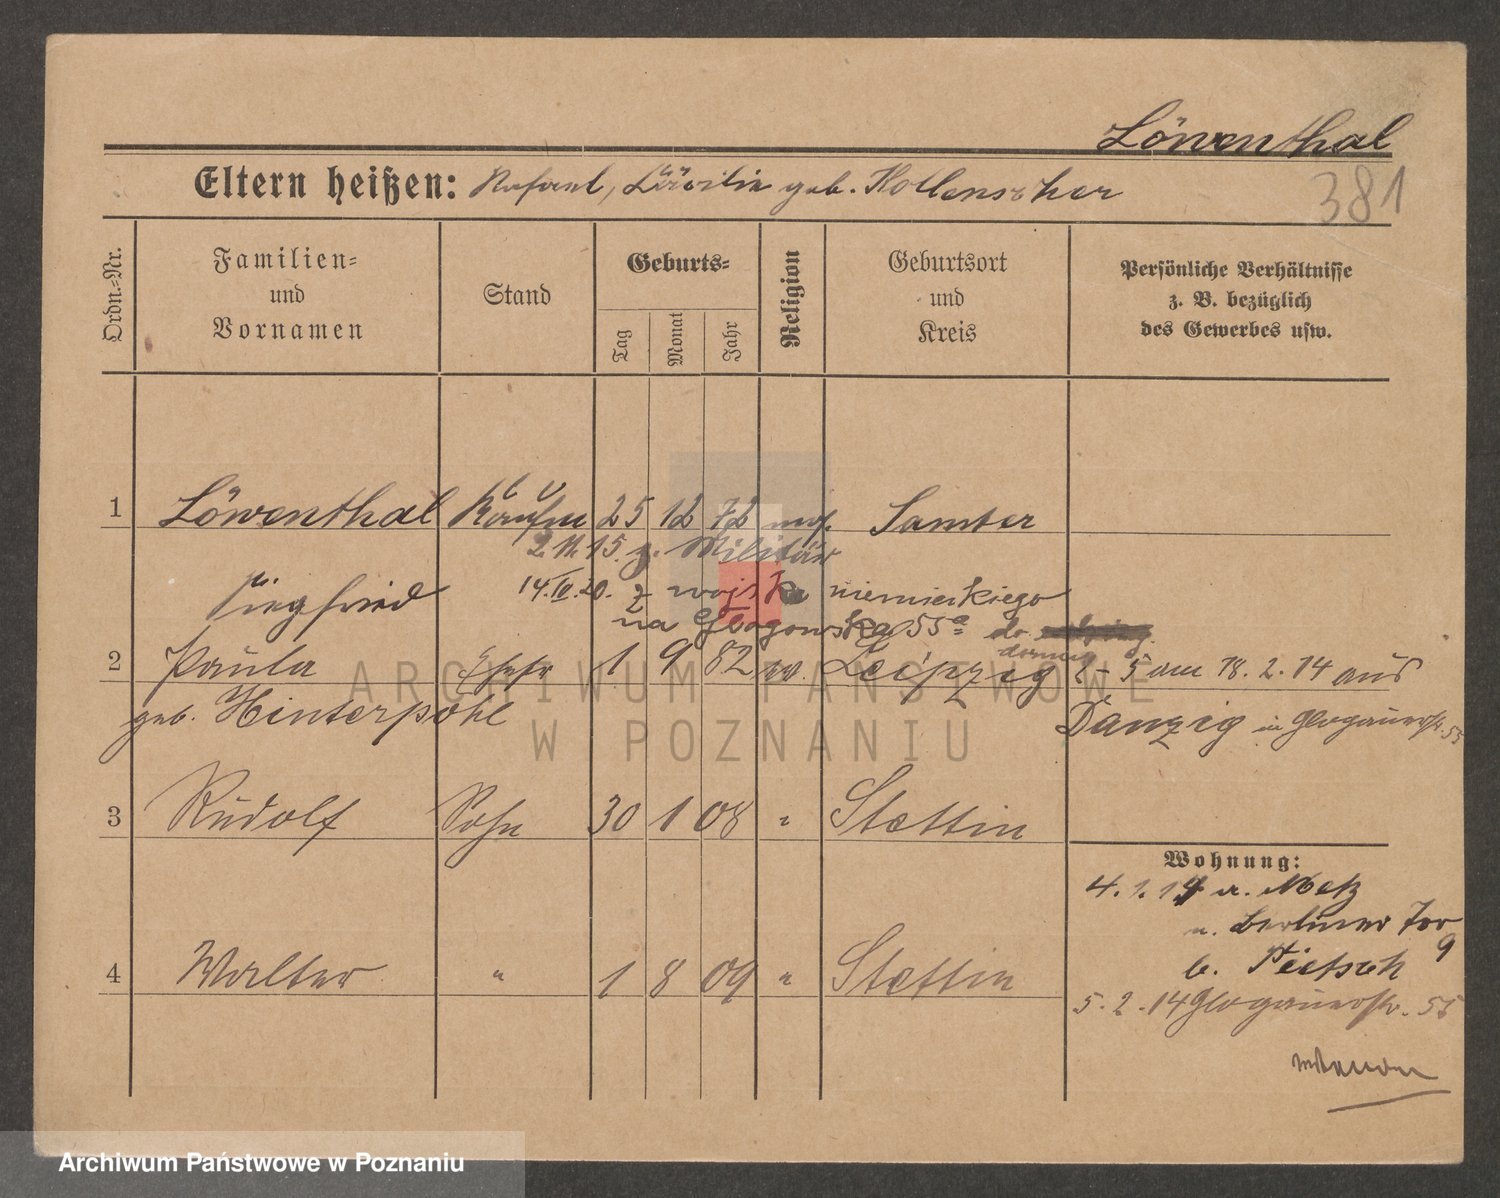 Löwenthal
381
Eltern heißen: Rafael, Cäcilie geb. Hollenscher
Ordn.=Nr.
Familien=
und
Vornamen
Stand
Geburts=
Tag
Monat
Jahr
Religion
Geburtsort
und
Kreis
Persönliche Verhältnisse
z. B. bezüglich
des Gewerbes usw.
1 Löwenthal Kaufm 25 12 72 mos. Samter
2. 11. 15. z. Militär
Siegfried 14.IV.20. z wojska niemieckiego
na Głogowska 55a do
2 Paula Ehefr 1 9 82 ev. Leipzig 2-5 am 18. 2. 14 aus
geb. Hinterpohl Danzig in Glogauerstr. 55
3 Rudolf Sohn 30 1 08 " Stettin
Wohnung:
4. 1. 14 a. Metz
n. Berliner Tor 9
b. Pietsch
4 Walter " 1 8 09 " Stettin
5. 2. 14 Glogauerstr. 55
ARCHIWUM PAŃSTWOWE
W POZNANIU
Archiwum Państwowe w Poznaniu